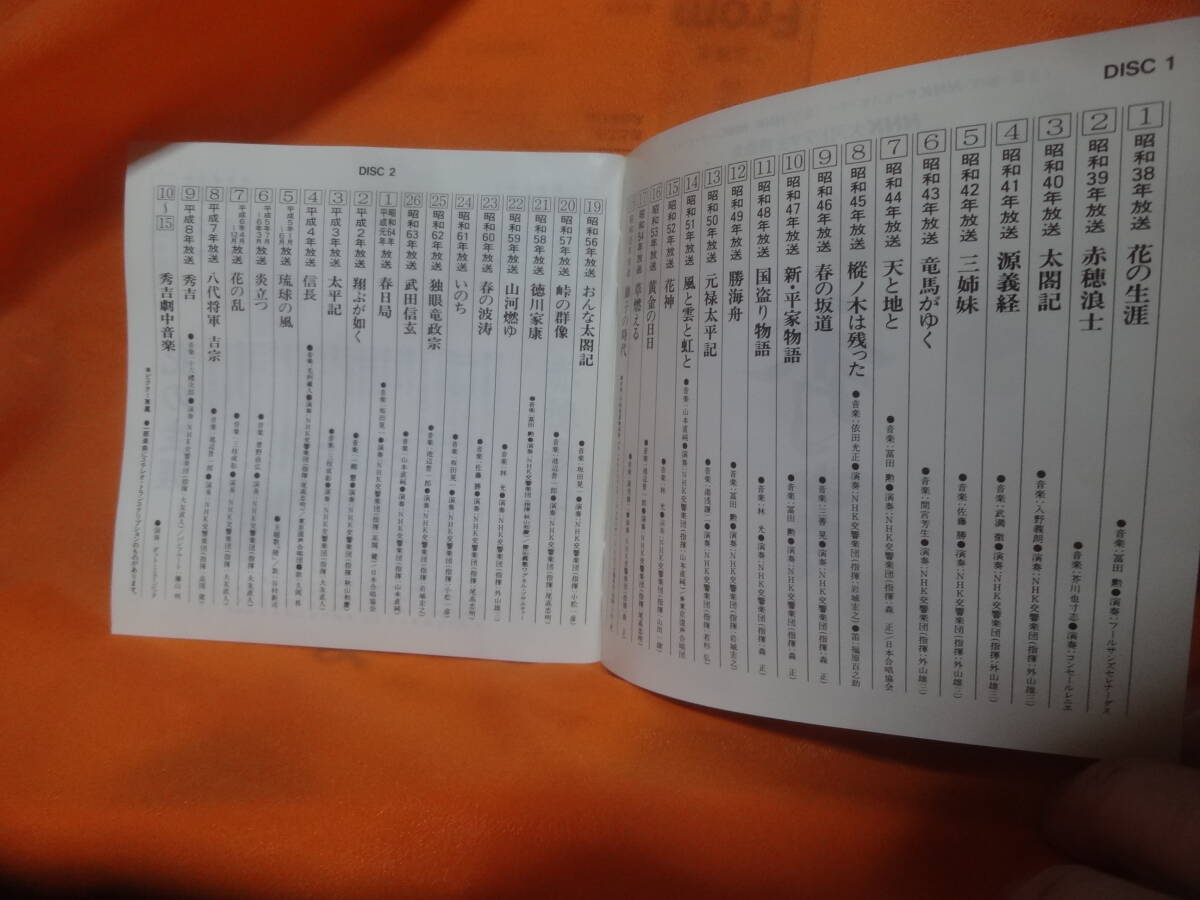 DISC 1
1 昭和38年放送 花の生涯 ●音楽:冨田 勲●演奏:フールサンズセレナーデス
2 昭和39年放送 赤穂浪士 ●音楽:芥川也寸志●演奏:コンセールレニエ
3 昭和40年放送 太閤記 ●音楽:入野義朗●演奏:NHK交響楽団(指揮:外山雄三)
4 昭和41年放送 源義経 ●音楽:武満 徹●演奏:NHK交響楽団(指揮:外山雄三)
5 昭和42年放送 三姉妹 ●音楽:佐藤 勝●演奏:NHK交響楽団(指揮:外山雄三)
6 昭和43年放送 竜馬がゆく ●音楽:間宮芳生●演奏:NHK交響楽団(指揮:外山雄三)
7 昭和44年放送 天と地と ●音楽:冨田 勲●演奏:NHK交響楽団(指揮:森 正)/日本合唱協会
8 昭和45年放送 樅ノ木は残った ●音楽:依田光正●演奏:NHK交響楽団(指揮:岩城宏之)●笛:福原百之助
9 昭和46年放送 春の坂道 ●音楽:三善 晃●演奏:NHK交響楽団(指揮:森 正)
10 昭和47年放送 新・平家物語 ●音楽:冨田 勲●演奏:NHK交響楽団(指揮:森 正)
11 昭和48年放送 国盗り物語 ●音楽:林 光●演奏:NHK交響楽団(指揮:森 正)
12 昭和49年放送 勝海舟 ●音楽:冨田 勲●演奏:NHK交響楽団(指揮:岩城宏之)
13 昭和50年放送 元禄太平記 ●音楽:湯浅譲二●演奏:NHK交響楽団(指揮:若杉 弘)
14 昭和51年放送 風と雲と虹と ●音楽:山本直純●演奏:NHK交響楽団(指揮:山本直純)●東京混声合唱団
15 昭和52年放送 花神 ●音楽:林 光●演奏:NHK交響楽団(指揮:山田一雄)
16 昭和53年放送 黄金の日日 ●音楽:池辺晋一郎●演奏:NHK交響楽団
17 昭和54年放送 草燃える
の時代
DISC 2
19 昭和56年放送 おんな太閤記 ●音楽:坂田晃一●演奏:NHK交響楽団(指揮:小松一彦)
20 昭和57年放送 峠の群像 ●音楽:池辺晋一郎●演奏:NHK交響楽団(指揮:尾高忠明)
21 昭和58年放送 徳川家康 ●音楽:冨田 勲●演奏:NHK交響楽団(指揮:秋山和慶)/慶応義塾ワグネル・ソサィエティー
22 昭和59年放送 山河燃ゆ ●音楽:林 光●演奏:NHK交響楽団(指揮:尾高忠明)
23 昭和60年放送 春の波涛 ●音楽:佐藤 勝●演奏:NHK交響楽団(指揮:外山雄三)
24 昭和61年放送 いのち ●音楽:坂田晃一●演奏:NHK交響楽団(指揮:小松一彦)
25 昭和62年放送 独眼竜政宗 ●音楽:池辺晋一郎●演奏:NHK交響楽団(指揮:岩城宏之)
26 昭和63年放送 武田信玄 ●音楽:山本直純●演奏:NHK交響楽団(指揮:山本直純)
1 昭和64年 平成元年 放送 春日局 ●音楽:坂田晃一●演奏:NHK交響楽団(指揮:高関 健)/日本合唱協会
2 平成2年放送 翔ぶが如く ●音楽:一柳 慧●演奏:NHK交響楽団(指揮:秋山和慶)
3 平成3年放送 太平記 ●音楽:三枝成彰●演奏:NHK交響楽団(指揮:大友直人)
4 平成4年放送 信長 ●音楽:毛利蔵人●演奏:NHK交響楽団(指揮:尾高忠明)/東京混声合唱団●歌:久岡 昇
5 平成5年1月~6月放送 琉球の風 ●主題歌:「階」/歌:谷村新司
6 平成5年7月~6年3月放送 炎立つ ●音楽:菅野由弘●演奏:NHK交響楽団(指揮:大友直人)
7 平成6年4月~12月放送 花の乱 ●音楽:三枝成彰●演奏:NHK交響楽団(指揮:大友直人)
8 平成7年放送 八代将軍 吉宗 ●音楽:池辺晋一郎●演奏:NHK交響楽団(指揮:高関 健)
9 平成8年放送 秀吉 ●音楽:小六禮次郎●演奏:NHK交響楽団(指揮:大友直人)
10~15 秀吉劇中音楽
●一部楽曲にステレオ・トランスクリプションのものがあります。